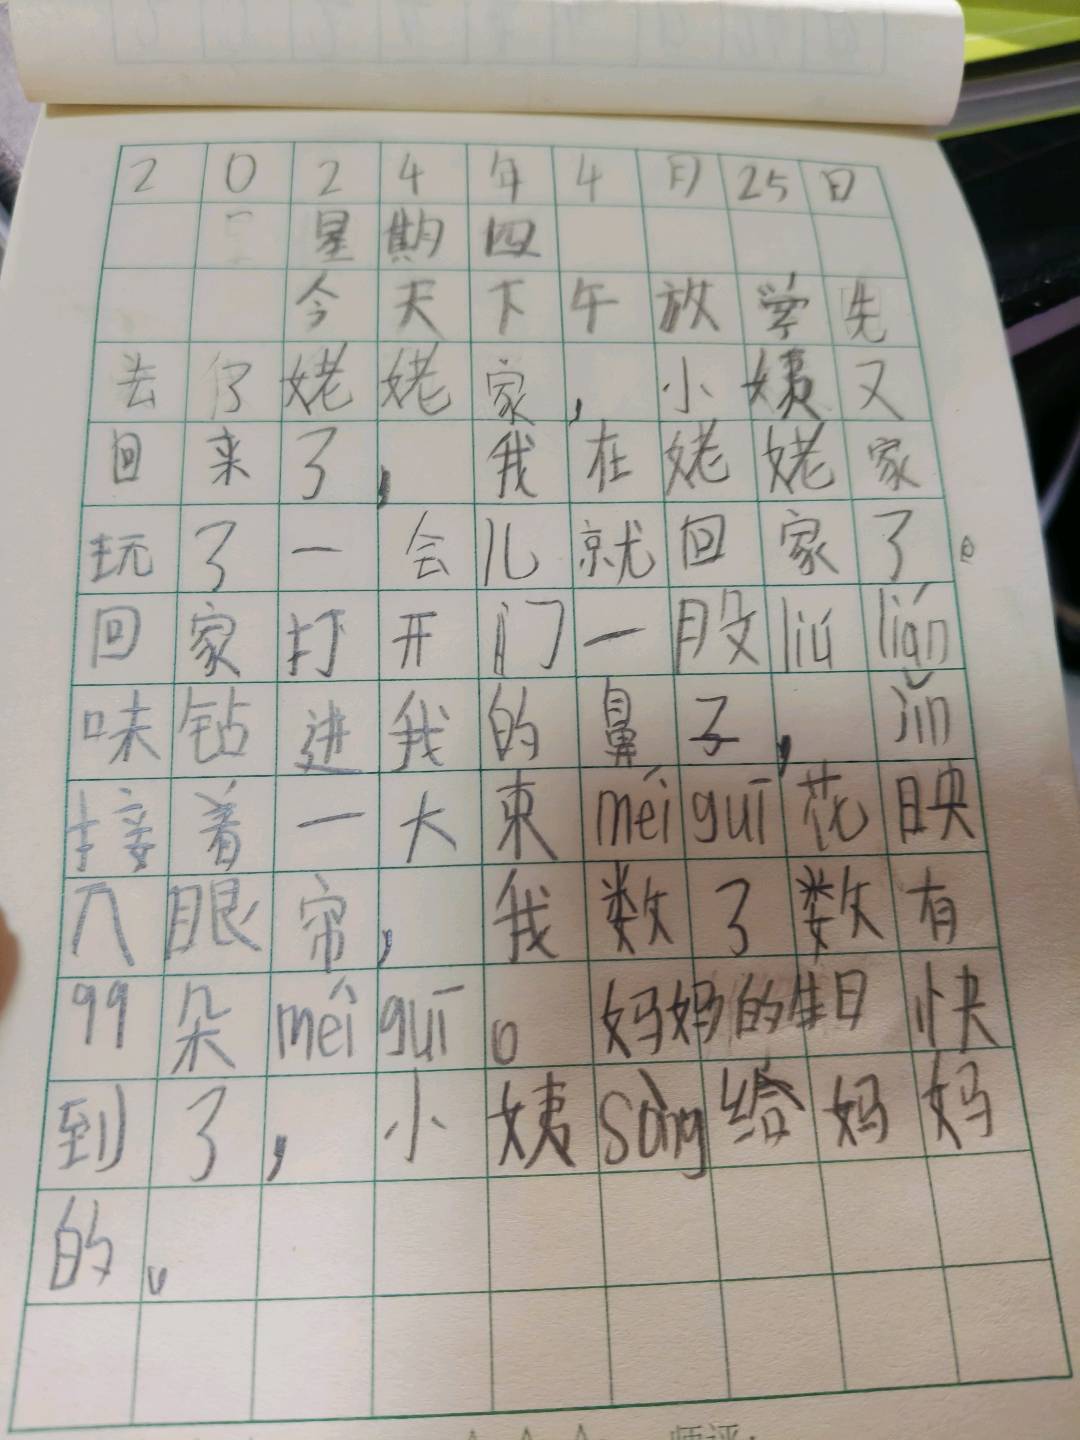 2024年4月25日
星期四
今天下午放学先
去了姥姥家,小姨又
回来了,我在姥姥家
玩了一会儿就回家了。
回家打开门一股liú lián
味钻进我的鼻子,jǐn
接着一大束méi guī花映
入眼帘,我数了数有
99朵méi guī。妈妈的生日快
到了,小姨sòng给妈妈
的。
师评: